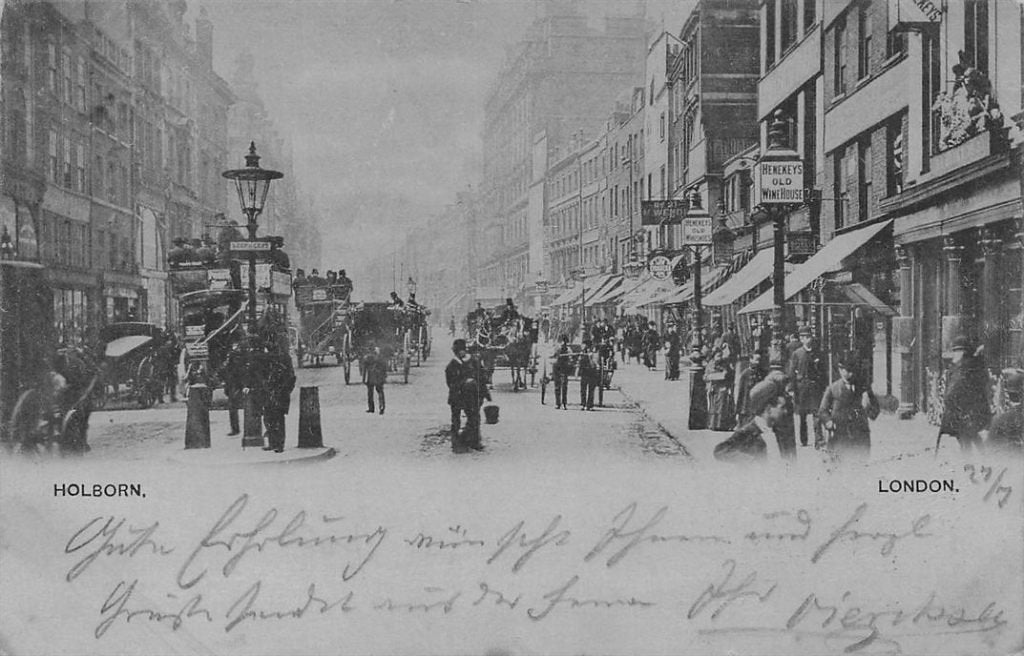 HENEKEYS
OLD
WINE HOUSE
HENEKEYS
OLD
WINEHOUSE
HOLBORN.
LONDON.
27/7
Gute Erholung wünscht Ihnen und herzl
Grüße sendet aus der Ferne Ihr